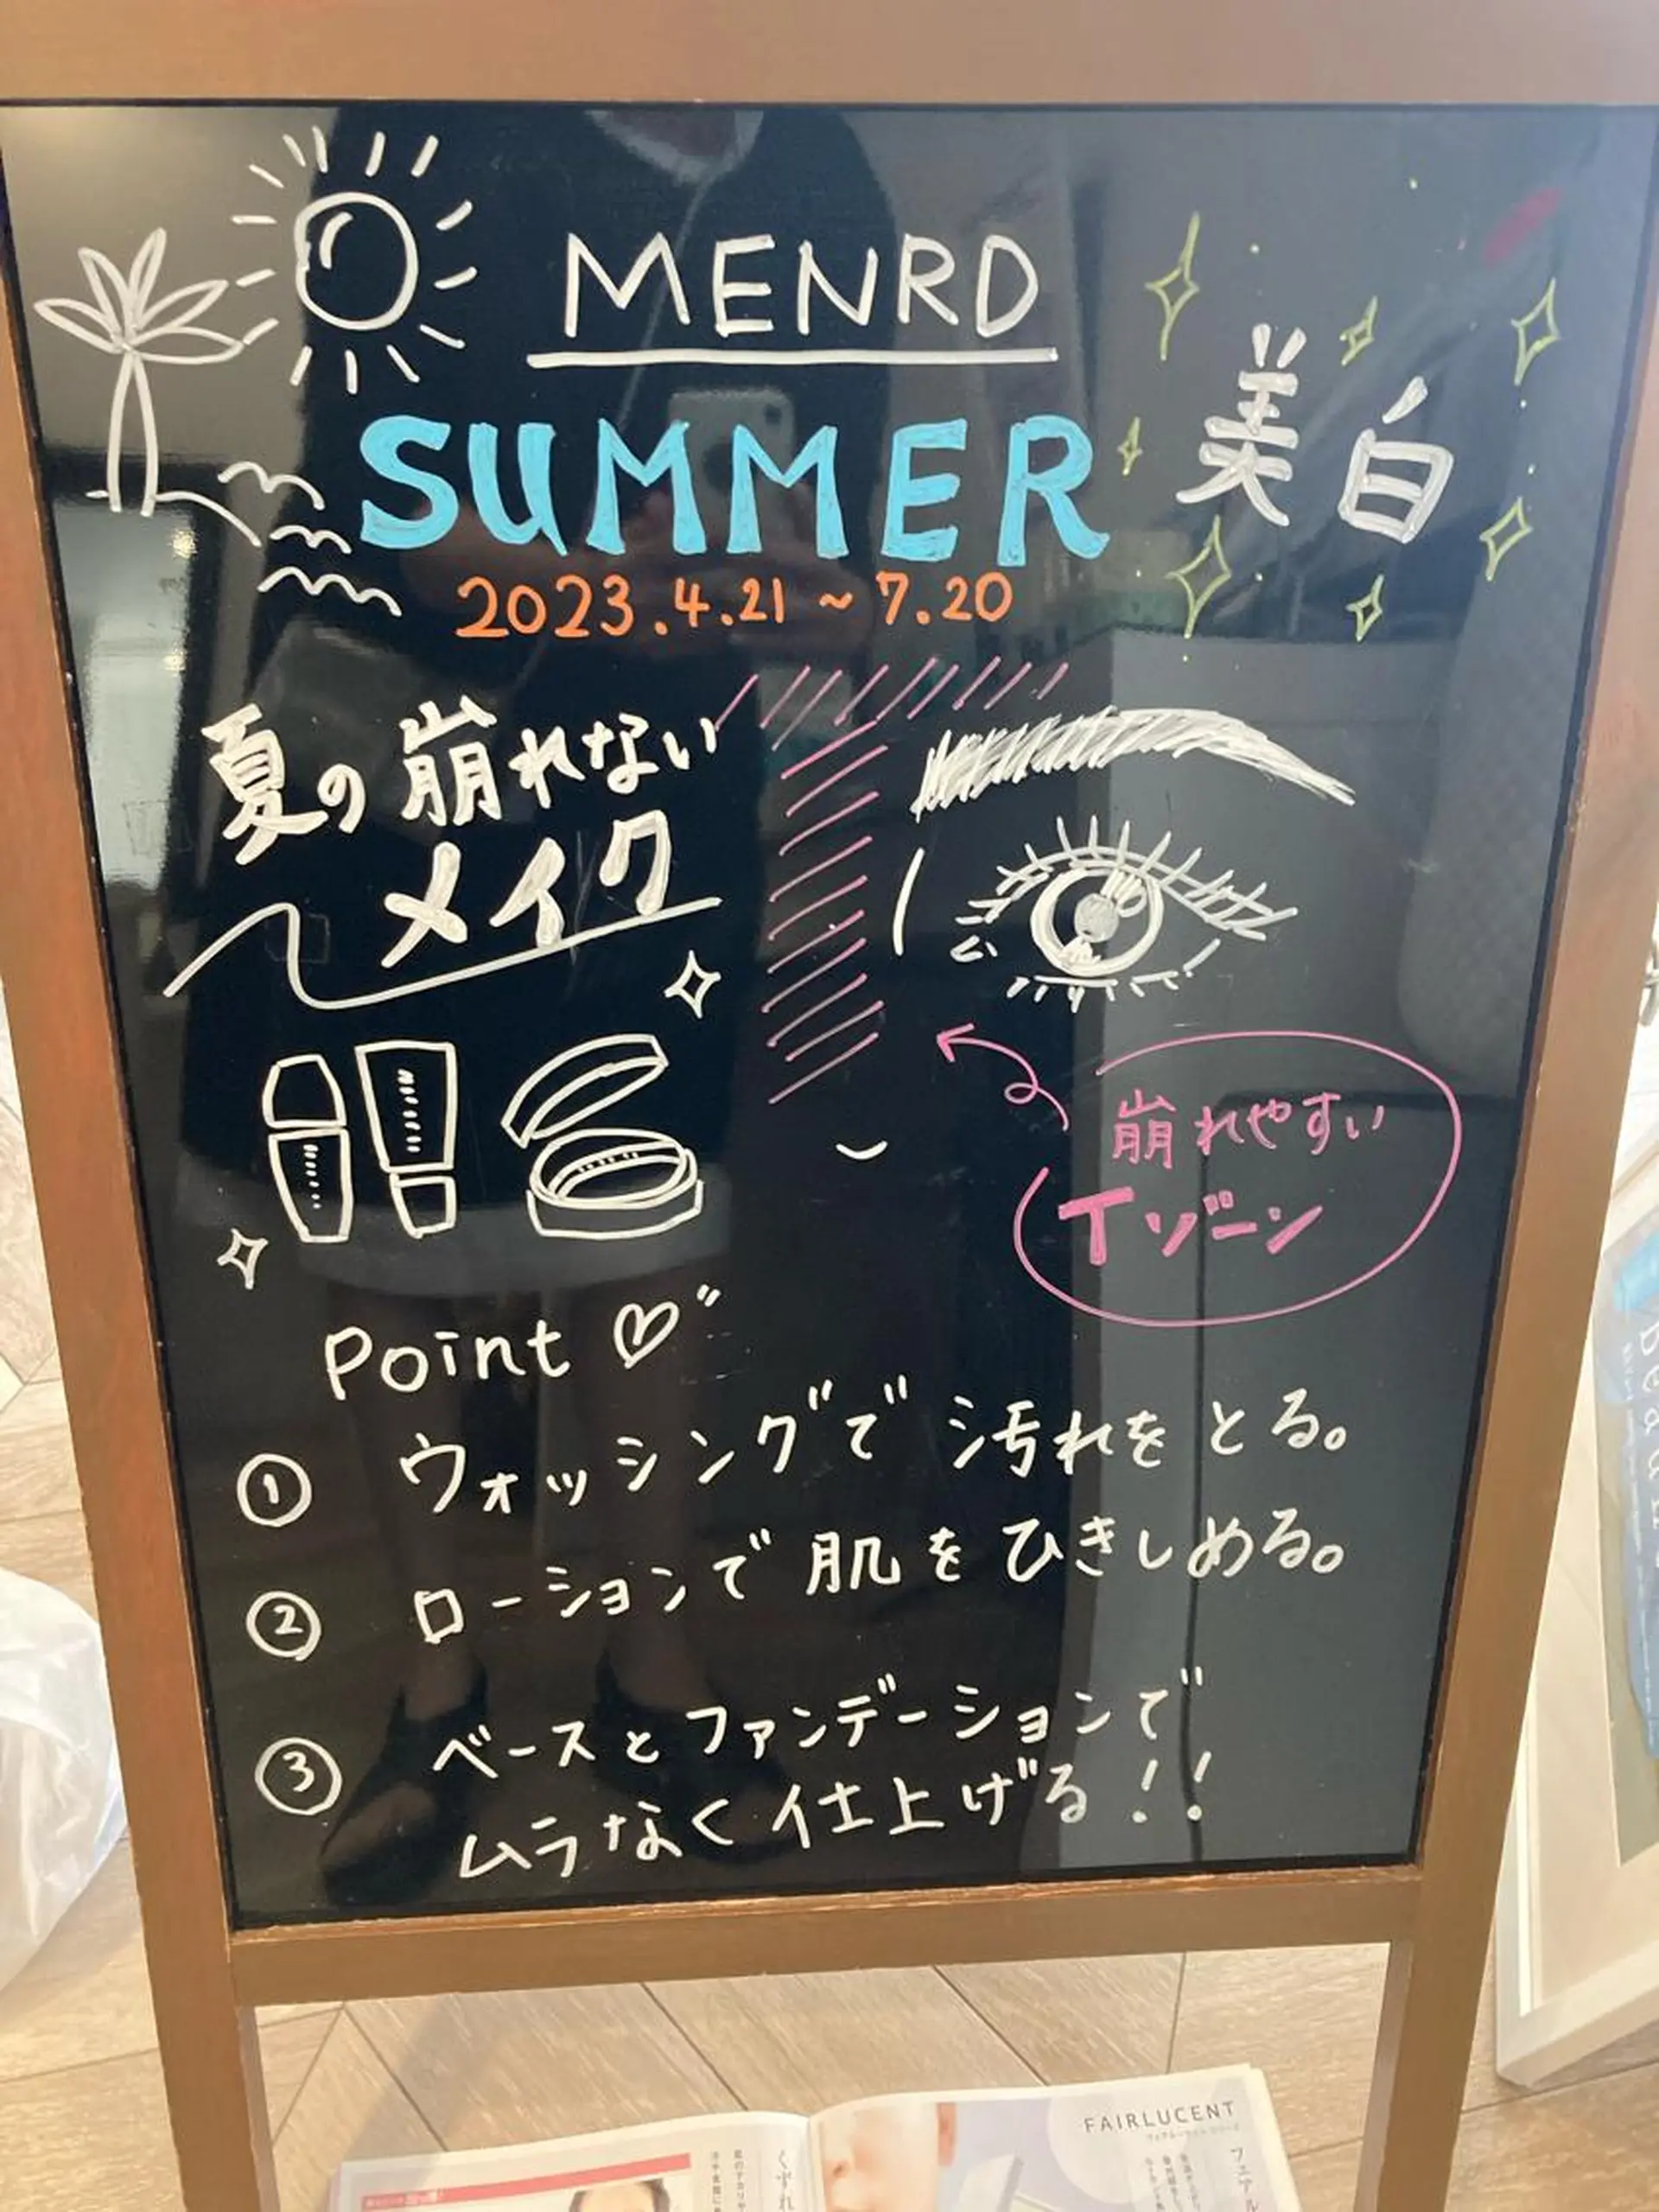 MENRD
SUMMER 美白
2023.4.21～7.20
夏の崩れない
メイク
崩れやすい
Tゾーン
Point
① ウォッシングで汚れをとる。
② ローションで肌をひきしめる。
③ ベースとファンデーションで
ムラなく仕上げる!!
FAIRLUCENT